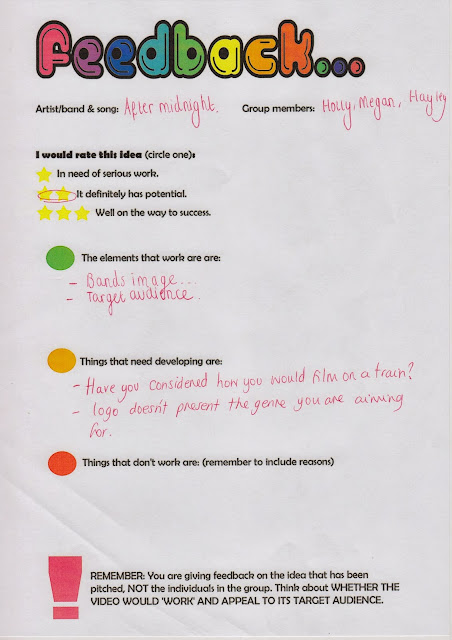 Feedback...
Artist/band & song: After midnight. Group members: Holly, Megan, Hayley
I would rate this idea (circle one):
In need of serious work.
It definitely has potential.
Well on the way to success.
The elements that work are are:
- Bands image...
- Target audience.
Things that need developing are:
- Have you considered how you would film on a train?
- logo doesn't present the genre you are aiming
for.
Things that don't work are: (remember to include reasons)
! REMEMBER: You are giving feedback on the idea that has been
pitched, NOT the individuals in the group. Think about WHETHER THE
VIDEO WOULD 'WORK' AND APPEAL TO ITS TARGET AUDIENCE.